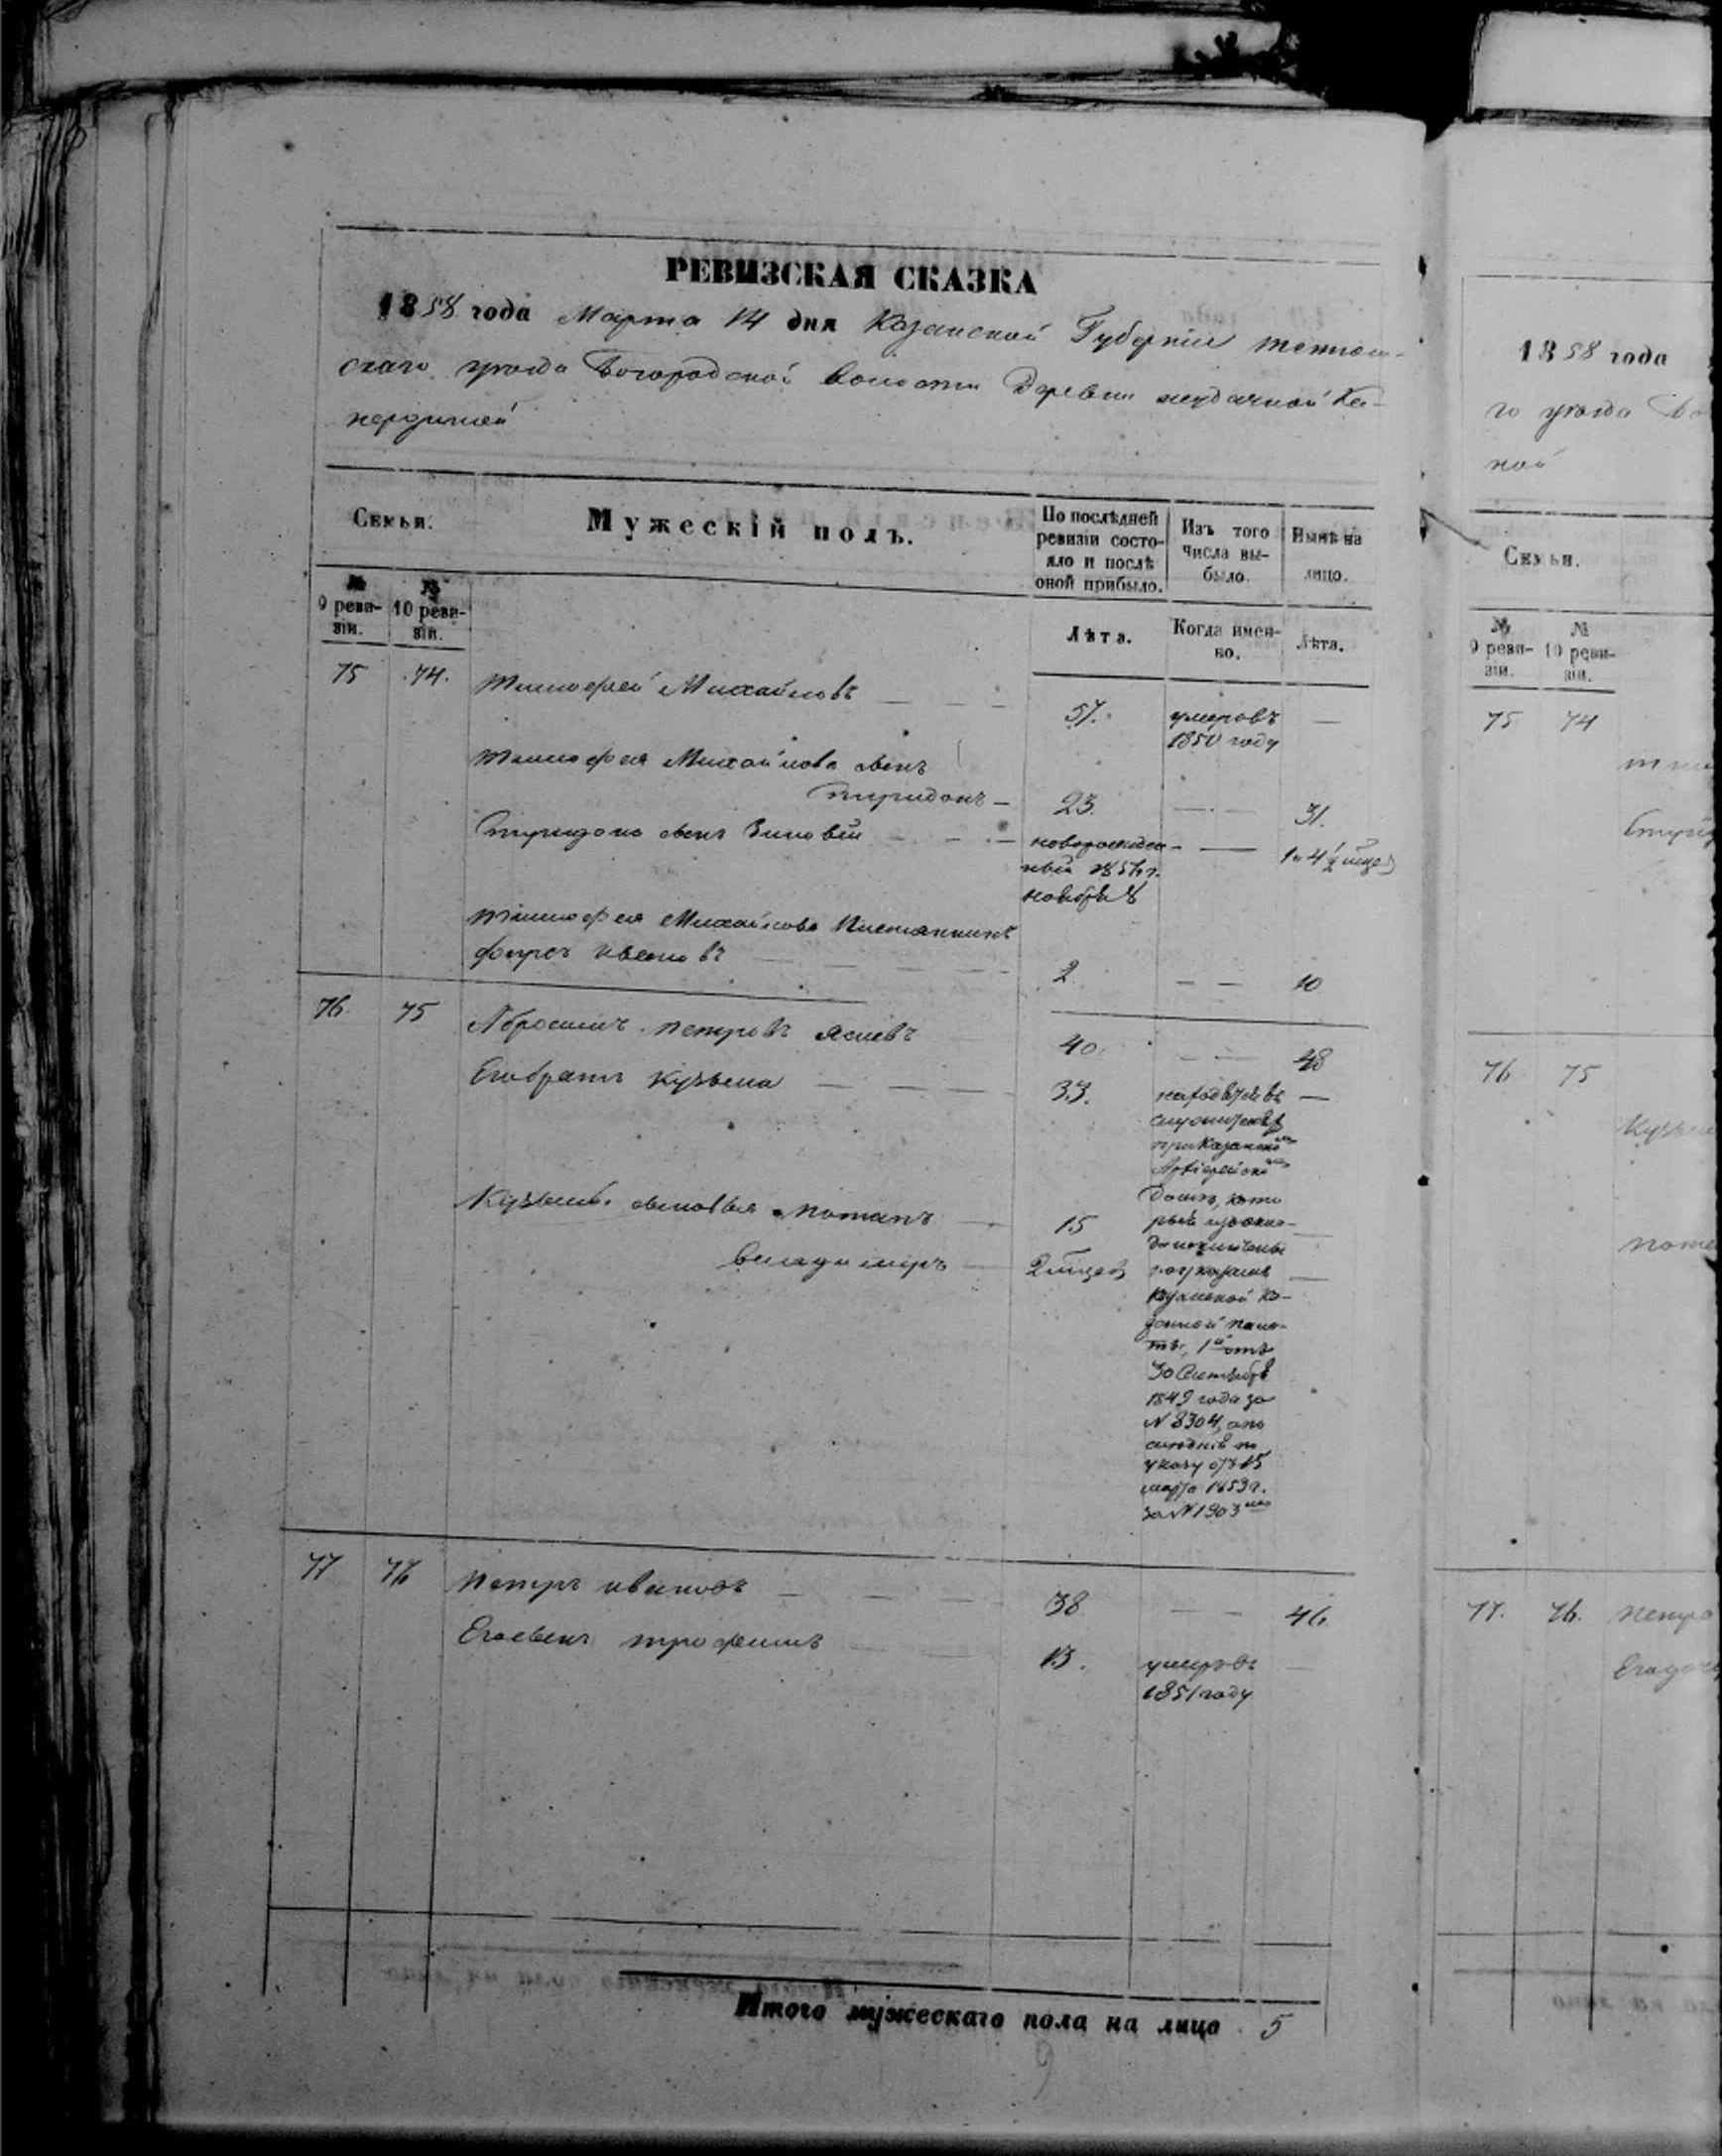 РЕВИЗСКАЯ СКАЗКА
1858 года Марта 14 дня Казанской Губернии
скаго уезда Богородской волости Деревни
Семьи.
Мужескій полъ.
По послѣдней ревизіи состо-
яло и послѣ
оной прибыло.
Изъ того
числа вы-
было.
Нынѣ на
лицо.
№ 9 реви-
зіи.
№ 10 реви-
зіи.
Лѣта.
Когда имен-
но.
Лѣта.
75 74. Тимофей Михайловъ 57. умеръ въ
1850 году
Тимофея Михайлова сынъ
Спиридонъ 23. 31.
Спиридона сынъ Зиновій новорожден-
ный 1856 г.
ноября 1 и 4 1/2 мцов
Тимофея Михайлова
Ивановъ 2 10
76. 75 Абросимъ Петровъ 40. 48
Его братъ Кузьма 33.
при Казанскомъ
Архіерейскомъ
Домѣ, кото
рые изъ окла-
да исключены
по указамъ
Казанской Ка-
зенной пала-
ты, 1й отъ
30 Сентября
1849 года за
№ 8304, а по
следній по
указу отъ 15
марта 1853 г.
за № 1903
Кузьмы сыновья Потапъ 15
Владимиръ 2 мцов
77 76 Петръ Ивановъ 38 46.
Его сынъ Трофимъ 13. умеръ въ
1851 году
Итого мужескаго пола на лицо 5
9
1858 года
го уезда Бо
ной
Семьи.
№ 9 реви-
зіи.
№ 10 реви-
зіи.
75 74
76 75
77. 76. Петра